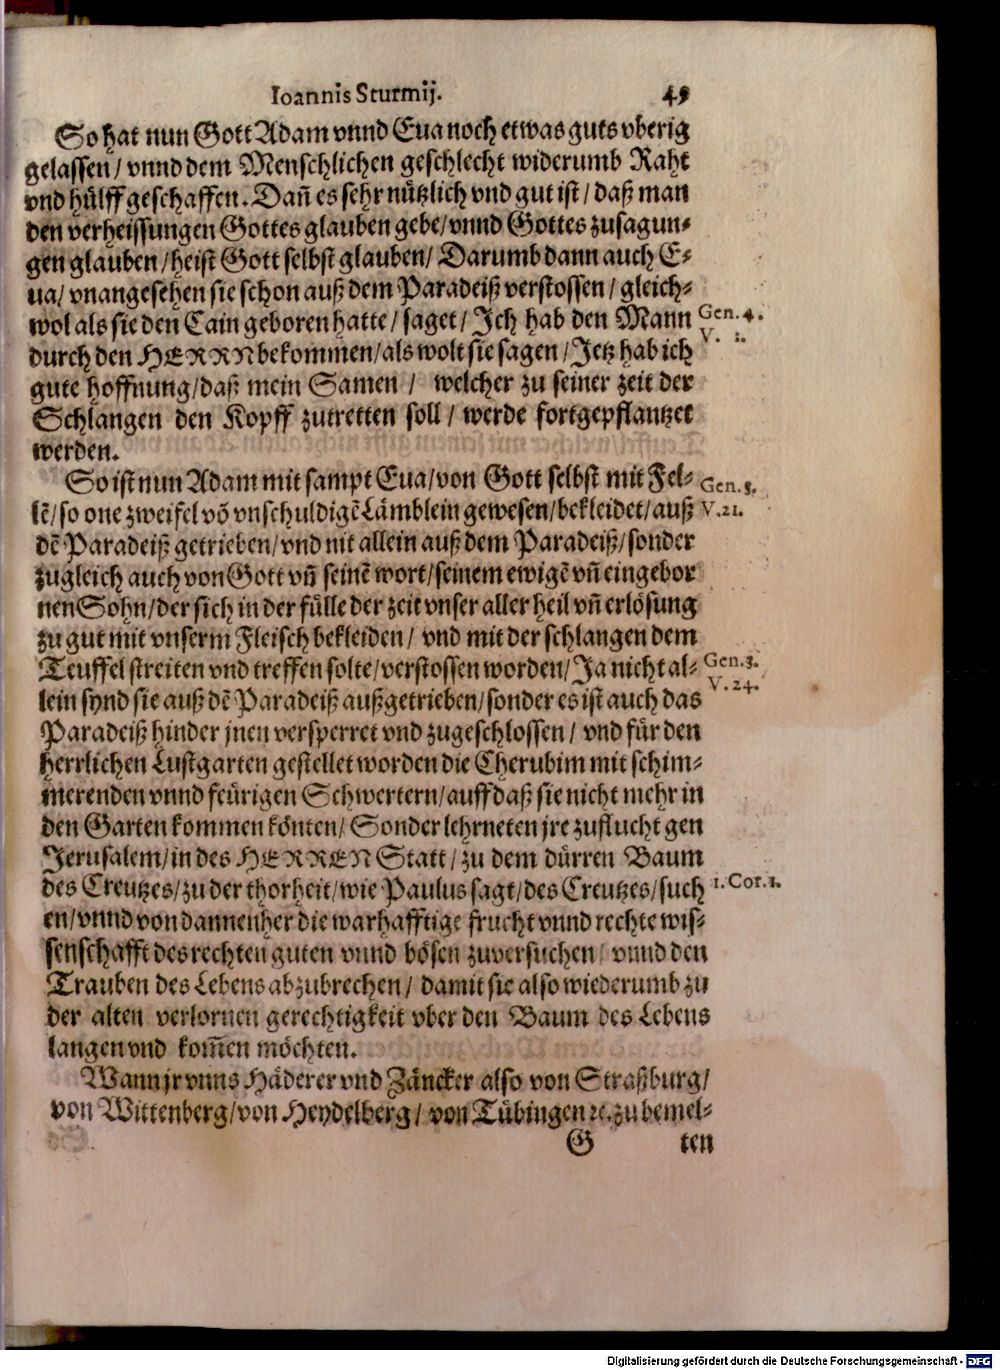 Ioannis Sturmij. 49
So hat nun Gott Adam vnnd Eua noch etwas guts vberig
gelassen / vnnd dem Menschlichen geschlecht widerumb Raht
vnd hülff geschaffen. Dañ es sehr nützlich vnd gut ist / daß man
den verheissungen Gottes glauben gebe / vnnd Gottes zusagun-
gen glauben / heist Gott selbst glauben / Darumb dann auch E-
ua / vnangesehen sie schon auß dem Paradeiß verstossen / gleich-
wol als sie den Cain geboren hatte / saget / Jch hab den Mann Gen. 4.
durch den HERRN bekommen / als wolt sie sagen / Jetz hab ich V. 1.
gute hoffnung / daß mein Samen / welcher zu seiner zeit der
Schlangen den Kopff zutretten soll / werde fortgepflantzet
werden.
So ist nun Adam mit sampt Eua / von Gott selbst mit Fel- Gen. 3.
lẽ / so one zweifel võ vnschuldigẽ Lämblein gewesen / bekleidet / auß V. 21.
dẽ Paradeiß getrieben / vnd nit allein auß dem Paradeiß / sonder
zugleich auch von Gott vñ seinẽ wort / seinem ewigẽ vñ eingebor
nen Sohn / der sich in der fülle der zeit vnser aller heil vñ erlösung
zu gut mit vnserm Fleisch bekleiden / vnd mit der schlangen dem
Teuffel streiten vnd treffen solte / verstossen worden / Ja nicht al- Gen. 3.
lein synd sie auß dẽ Paradeiß außgetrieben / sonder es ist auch das V. 24.
Paradeiß hinder jnen versperret vnd zugeschlossen / vnd für den
herrlichen Lustgarten gestellet worden die Cherubim mit schim-
merenden vnnd feürigen Schwertern / auff daß sie nicht mehr in
den Garten kommen könten / Sonder lehrneten jre zuflucht gen
Jerusalem / in des HERREN Statt / zu dem dürren Baum
des Creutzes / zu der thorheit / wie Paulus sagt / des Creutzes / such 1. Cor. 1.
en / vnnd von dannenher die warhafftige frucht vnnd rechte wis-
senschafft des rechten guten vnnd bösen zuversuchen / vnnd den
Trauben des Lebens abzubrechen / damit sie also wiederumb zu
der alten verlornen gerechtigkeit vber den Baum des Lebens
langen vnd kom̃en möchten.
Wann jr vnns Häderer vnd Zäncker also von Straßburg /
von Wittenberg / von Heydelberg / von Tübingen ꝛc. zu bemel-
G ten
Digitalisierung gefördert durch die Deutsche Forschungsgemeinschaft - DFG